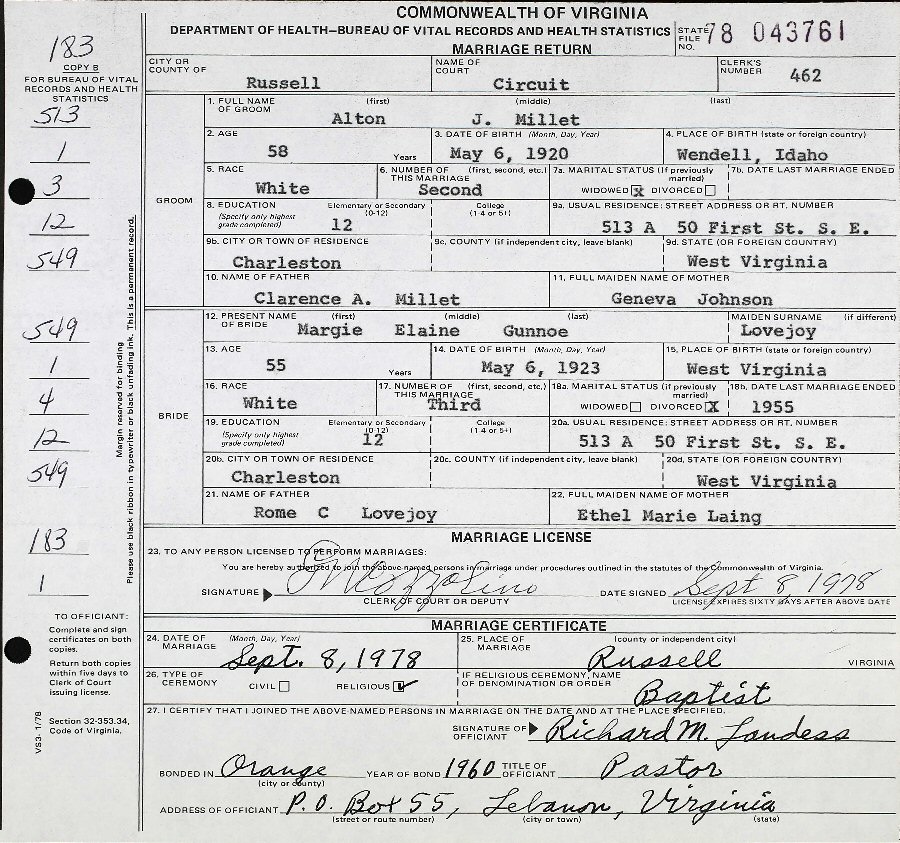 COMMONWEALTH OF VIRGINIA
DEPARTMENT OF HEALTH—BUREAU OF VITAL RECORDS AND HEALTH STATISTICS
MARRIAGE RETURN
STATE FILE NO. 78 043761
183
COPY B
FOR BUREAU OF VITAL RECORDS AND HEALTH STATISTICS
513
1
3
12
549
549
1
4
12
549
183
1
Margin reserved for binding
Please use black ribbon in typewriter or black unfading ink. This is a permanent record.
TO OFFICIANT:
Complete and sign
certificates on both
copies.
Return both copies
within five days to
Clerk of Court
issuing license.
Section 32-353.34,
Code of Virginia.
VS3- 1/78
CITY OR COUNTY OF Russell NAME OF COURT Circuit CLERK'S NUMBER 462
GROOM
1. FULL NAME OF GROOM (first) (middle) (last)
Alton J. Millet
2. AGE 58 Years 3. DATE OF BIRTH (Month, Day, Year) May 6, 1920 4. PLACE OF BIRTH (state or foreign country) Wendell, Idaho
5. RACE White 6. NUMBER OF THIS MARRIAGE (first, second, etc.) Second 7a. MARITAL STATUS (If previously married) WIDOWED X DIVORCED 7b. DATE LAST MARRIAGE ENDED
8. EDUCATION (Specify only highest grade completed) Elementary or Secondary (0-12) 12 College (1-4 or 5+) 9a. USUAL RESIDENCE: STREET ADDRESS OR RT. NUMBER 513 A 50 First St. S. E.
9b. CITY OR TOWN OF RESIDENCE Charleston 9c. COUNTY (if independent city, leave blank) 9d. STATE (OR FOREIGN COUNTRY) West Virginia
10. NAME OF FATHER Clarence A. Millet 11. FULL MAIDEN NAME OF MOTHER Geneva Johnson
BRIDE
12. PRESENT NAME OF BRIDE (first) (middle) (last) Margie Elaine Gunnoe MAIDEN SURNAME (if different) Lovejoy
13. AGE 55 Years 14. DATE OF BIRTH (Month, Day, Year) May 6, 1923 15. PLACE OF BIRTH (state or foreign country) West Virginia
16. RACE White 17. NUMBER OF THIS MARRIAGE (first, second, etc.) Third 18a. MARITAL STATUS (if previously married) WIDOWED DIVORCED X 18b. DATE LAST MARRIAGE ENDED 1955
19. EDUCATION (Specify only highest grade completed) Elementary or Secondary (0-12) 12 College (1-4 or 5+) 20a. USUAL RESIDENCE: STREET ADDRESS OR RT. NUMBER 513 A 50 First St. S. E.
20b. CITY OR TOWN OF RESIDENCE Charleston 20c. COUNTY (if independent city, leave blank) 20d. STATE (OR FOREIGN COUNTRY) West Virginia
21. NAME OF FATHER Rome C Lovejoy 22. FULL MAIDEN NAME OF MOTHER Ethel Marie Laing
MARRIAGE LICENSE
23. TO ANY PERSON LICENSED TO PERFORM MARRIAGES:
You are hereby authorized to join the above-named persons in marriage under procedures outlined in the statutes of the Commonwealth of Virginia.
SIGNATURE DATE SIGNED Sept 8, 1978
CLERK OF COURT OR DEPUTY LICENSE EXPIRES SIXTY DAYS AFTER ABOVE DATE
MARRIAGE CERTIFICATE
24. DATE OF MARRIAGE (Month, Day, Year) Sept. 8, 1978 25. PLACE OF MARRIAGE (county or independent city) Russell VIRGINIA
26. TYPE OF CEREMONY CIVIL RELIGIOUS ✓ IF RELIGIOUS CEREMONY, NAME OF DENOMINATION OR ORDER Baptist
27. I CERTIFY THAT I JOINED THE ABOVE-NAMED PERSONS IN MARRIAGE ON THE DATE AND AT THE PLACE SPECIFIED.
SIGNATURE OF OFFICIANT Richard M. Landess
BONDED IN Orange (city or county) YEAR OF BOND 1960 TITLE OF OFFICIANT Pastor
ADDRESS OF OFFICIANT P.O. Box 55, Lebanon, Virginia
(street or route number) (city or town) (state)